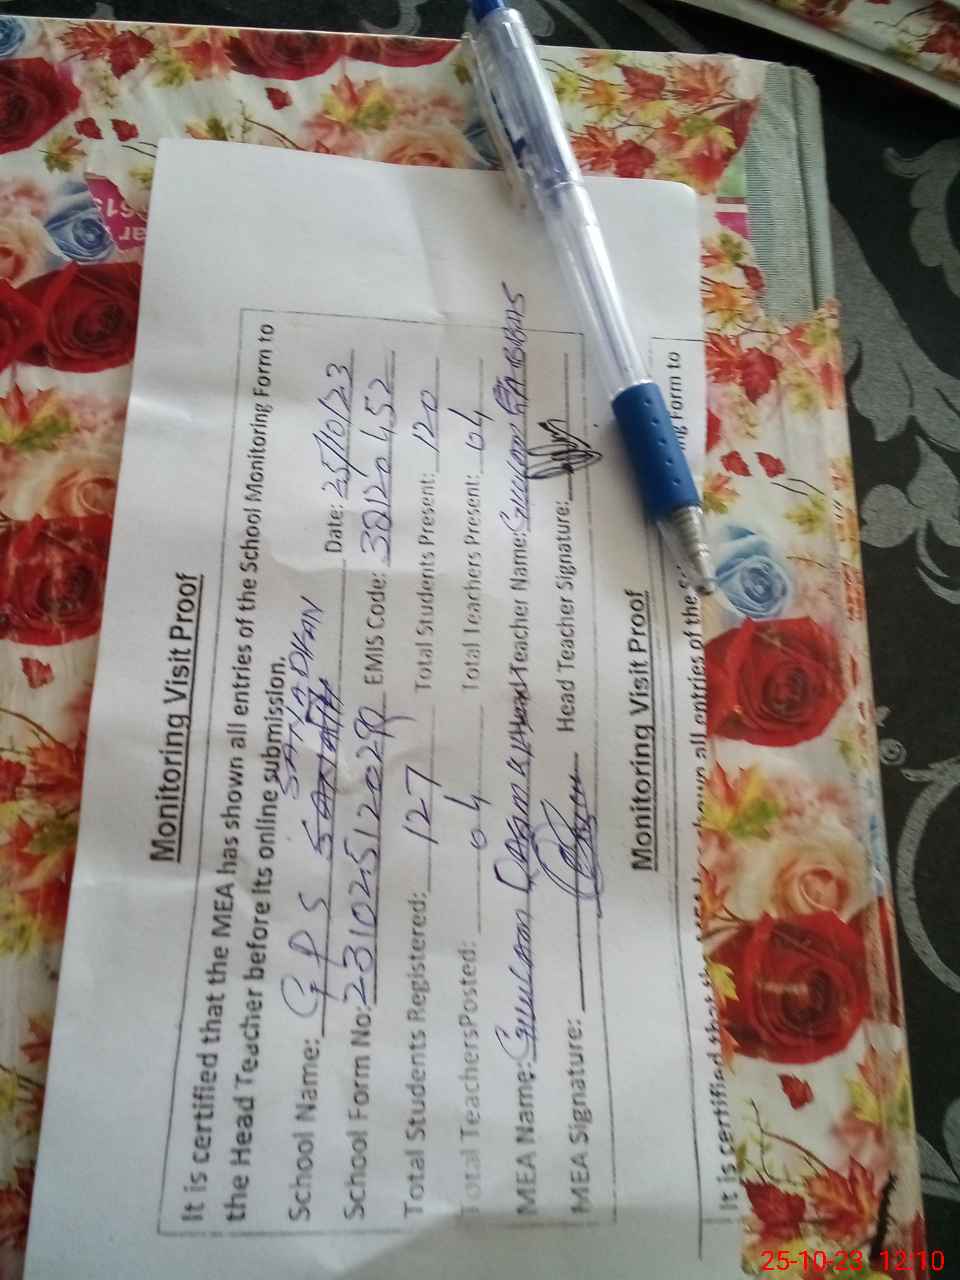 Monitoring Visit Proof
It is certified that the MEA has shown all entries of the School Monitoring Form to
the Head Teacher before its online submission.
School Name: GPS SANADHAN Date: 25/10/23
School Form No: 2310251202 EMIS Code: 38120452
Total Students Registered: 127 Total Students Present: 120
Total TeachersPosted: 04 Total Teachers Present: 04
MEA Name: GHULAM Head Teacher Name: GHULAM ABBAS
MEA Signature: Head Teacher Signature:
Monitoring Visit Proof
It is certified that the shown all entries of the ng Form to
25-10-23 12:10